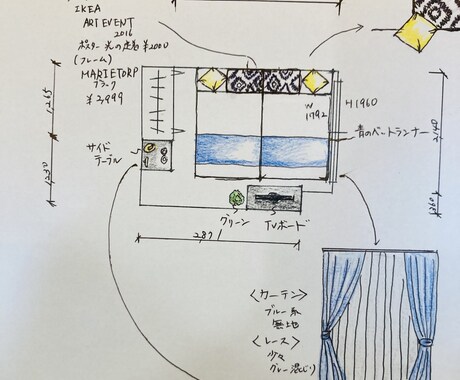 IKEA
ART EVENT
2016
ポスター 光の走る ¥2000
(フレーム)
MARIETORP
ブラック
¥2,999
サイド
テーブル
W
1792
H1960
青のベートランナー
グリーン
TVボード
2,871
1230
2140
<カーテン>
ブルー系
無地
<レース>
少々
グレー混じり